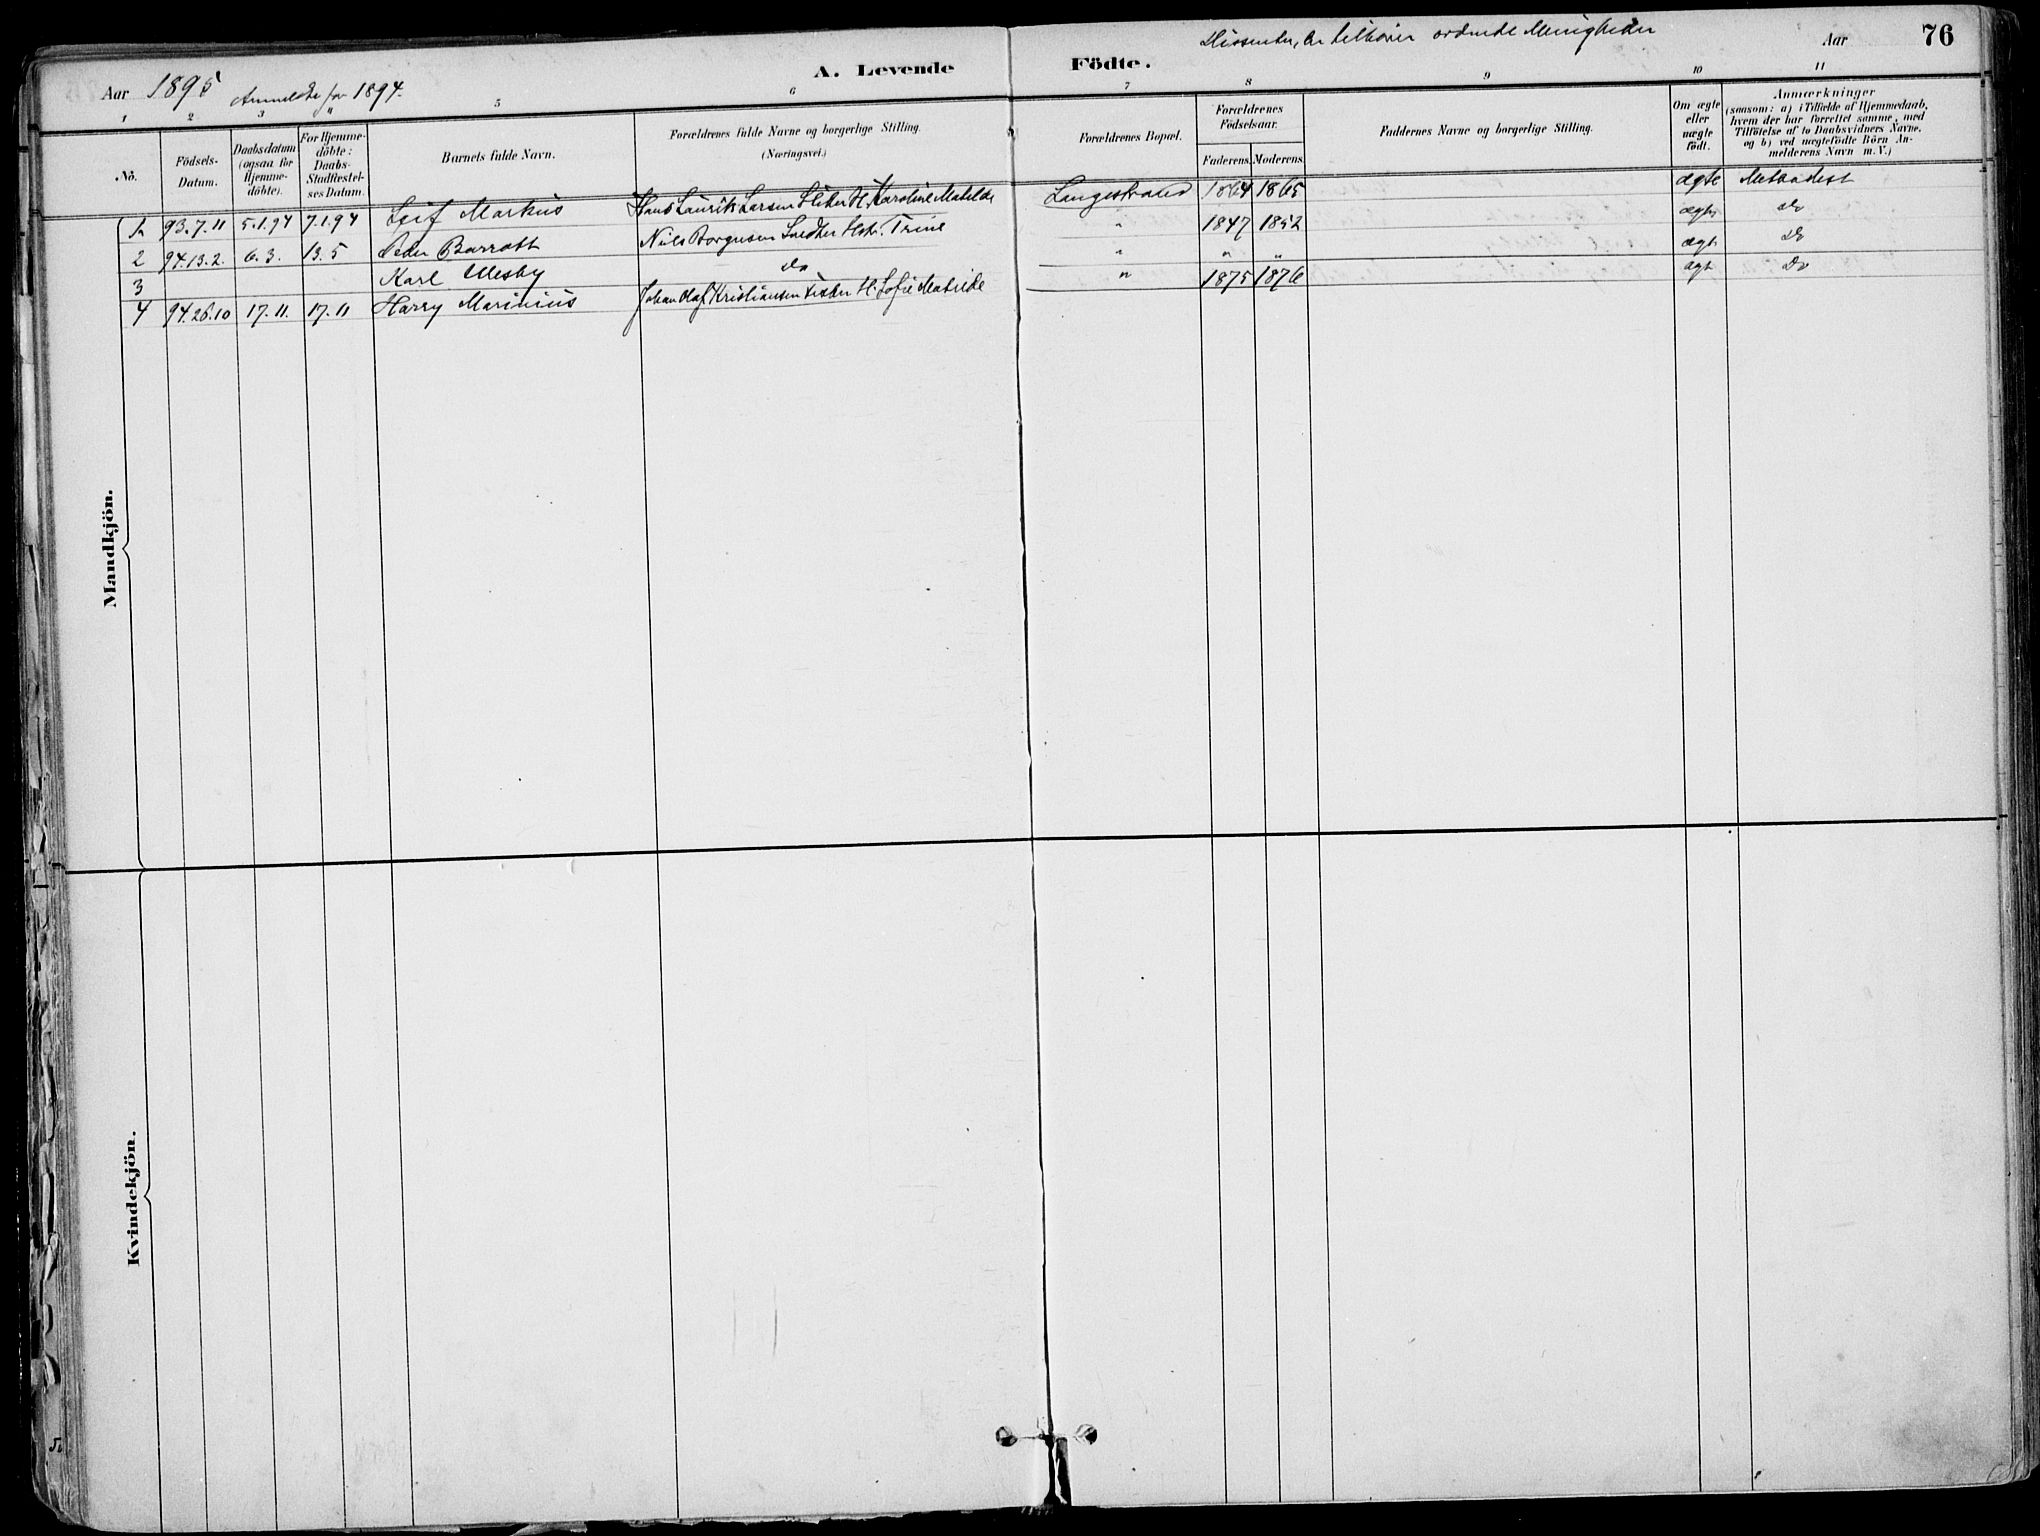 Dissenter, der tilhører ordnede Menigheder
Aar 76
Aar 1895 Anmeldte for 1894.
A. Levende Födte.
1 2 3 " 5 6 7 8 9 10 11
No.
Födsels-Datum.
Daabsdatum (ogsaa for Hjemme-döbte).
For Hjemme-döbte: Daabs-Stadfæstel-ses Datum.
Barnets fulde Navn.
Forældrenes fulde Navne og borgerlige Stilling. (Næringsvei.)
Forældrenes Bopæl.
Forældrenes Födselsaar.
Faderens. Moderens.
Faddernes Navne og borgerlige Stilling.
Om ægte eller uægte födt.
Anmærkninger (saasom: a) i Tilfælde af Hjemmedaab, hvem der har forrettet samme, med Tilföielse af to Daabsvidners Navne, og b) ved uægtefödte Börn An-melderens Navn m.V.)
1 93.7.11 5.1.94 7.1.94 Leif Markus Hans Laurik Larsen H. Karoline Matilde Langestrand 1864 1865 ægte Methodist
2 94.13.2. 6.3. 13.5 Peder Barratt Nils Borgusen Hstr. Trine " 1847 1852 ægte Do
3 Karl Ulesby Do " " " ægt Do
4 94.26.10 17.11. 17.11 Harry Marinius Johan Olaf Kristiansen H. Sofie Matilde " 1875 1876 ægt Do
Mandkjön.
Kvindekjön.